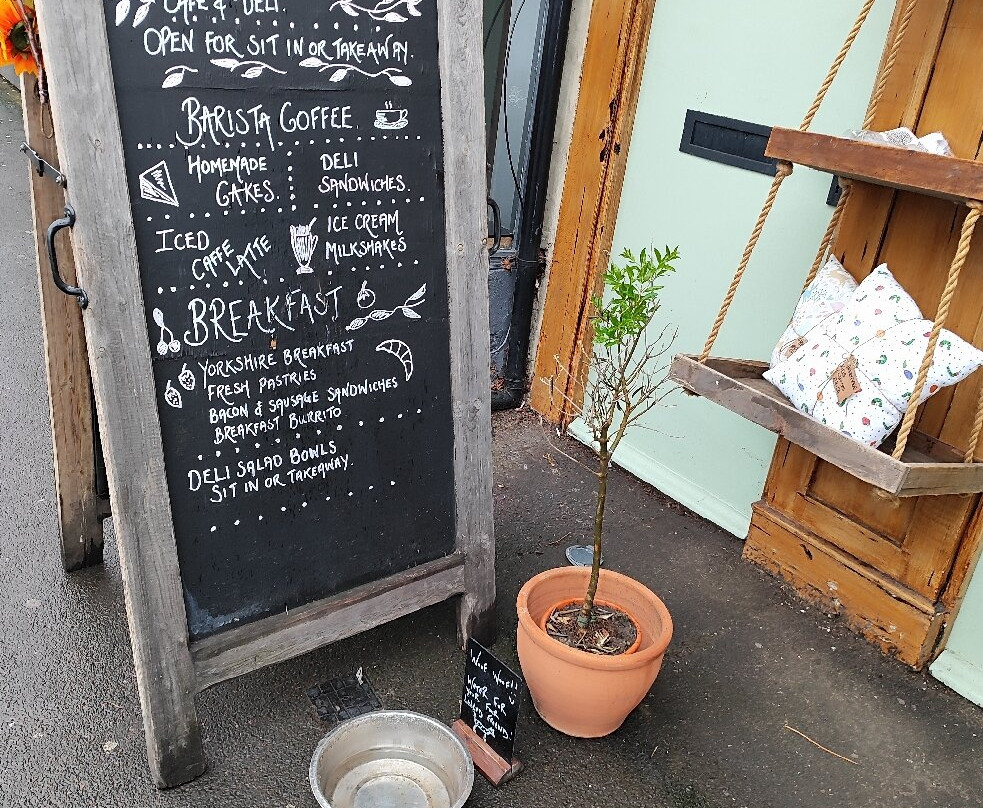 CAFE & DELI.
OPEN FOR SIT IN OR TAKEAWAY.
BARISTA COFFEE
HOMEMADE
CAKES.
DELI
SANDWICHES.
ICED
CAFFE LATTE
ICE CREAM
MILKSHAKES
BREAKFAST
YORKSHIRE BREAKFAST
FRESH PASTRIES
BACON & SAUSAGE SANDWICHES
BREAKFAST BURRITO
DELI SALAD BOWLS
SIT IN OR TAKEAWAY.
WOOF WOOF!!
WATER FOR
YOUR FOUR
LEGGED FRIEND.